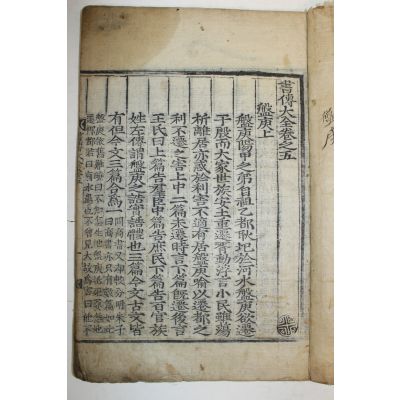 書傳大全卷之五
盤庚上
盤庚陽甲之弟自祖乙都耿圮於河水盤庚欲遷
于殷而大家世族安土重遷胥動浮言小民雖蕩
析離居亦惑於利害不適有居盤庚喻以遷都之
利不遷之害上中二篇未遷時言下篇旣遷後言
王氏曰上篇告羣臣中篇告庶民下篇告百官族
姓左傳謂盤庚之誥實誥體也三篇今文古文皆
有但今文三篇合爲一
盤庚